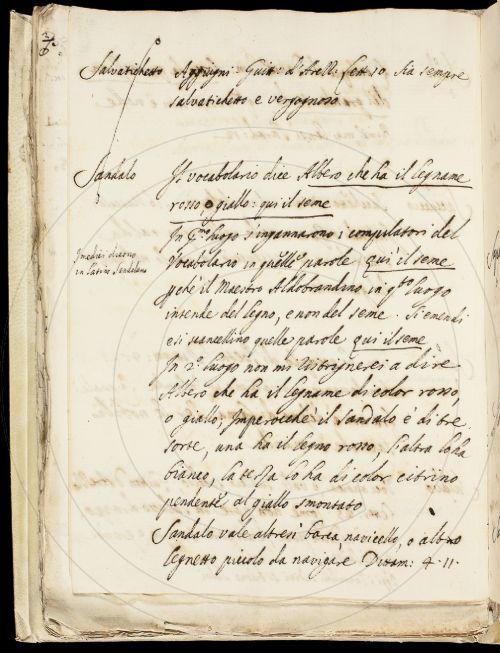 Salvatichetto Aggiugni: Guitt: d'Arezz: Lett: 10. Sia sempre
salvatichetto e vergognoso.
Sandalo Il vocabolario dice Albero che ha il legname
rosso, o giallo: qui il seme
In p.mo luogo s'ingannarono i compilatori del
Vocabolario in quelle parole qui il seme
I medici dicono
in latino Sandalum
che il Maestro Aldobrandino in q.to luogo
intende del legno, e non del seme. Si emendi
e si scancellino quelle parole qui il seme
In 2.o luogo non mi ristrignerei a dire
Albero che ha il legname di color rosso,
o giallo; Imperocchè il Sandalo è di tre
sorte, una ha il legno rosso, l'altra lo ha
bianco, la terza lo ha di color citrino
pendente al giallo smontato
Sandalo vale altresì barca, navicello, o altro
legnetto piccolo da navigare Dittam: 4. 11.